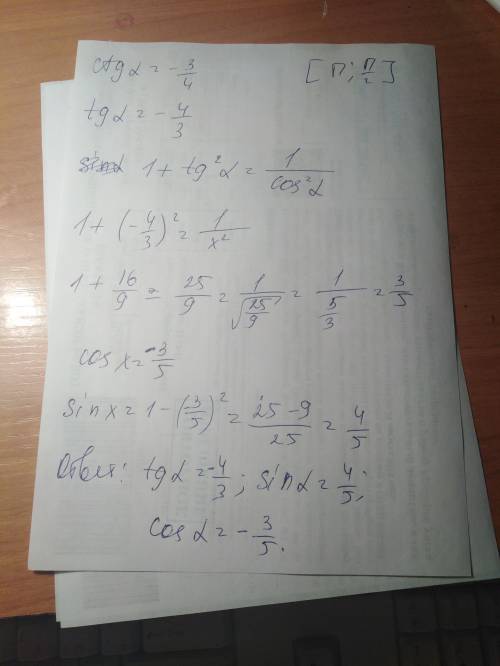 ctg α = -3/4 [π; π/2]
tg α = -4/3
sin α 1 + tg²α = 1/cos²α
1 + (-4/3)² = 1/x²
1 + 16/9 = 25/9 = 1/√(25/9) = 1/(5/3) = 3/5
cos x = -3/5
sin x = 1 - (3/5)² = (25 - 9)/25 = 4/5
Ответ: tg α = -4/3; sin α = 4/5;
cos α = -3/5.